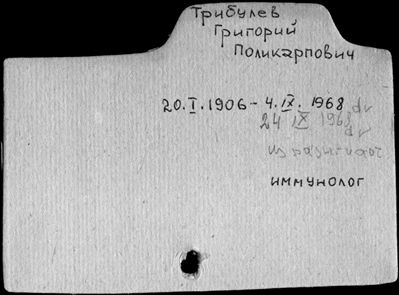 Трибулев
Григорий
Поликарпович
20.I.1906 - 4.IX.1968
24 IX 1968
иммунолог